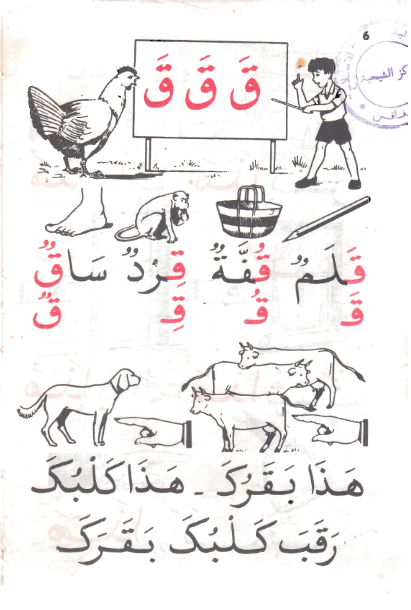 6
قَ قَ قَ
قَلَمٌ قُفَّةٌ قِرْدٌ سَاقٌ
قَ قُ قِ قٌ
هَذَا بَقَرُكَ ـ هَذَا كَلْبُكَ
رَقَبَ كَلْبُكَ بَقَرَكَ